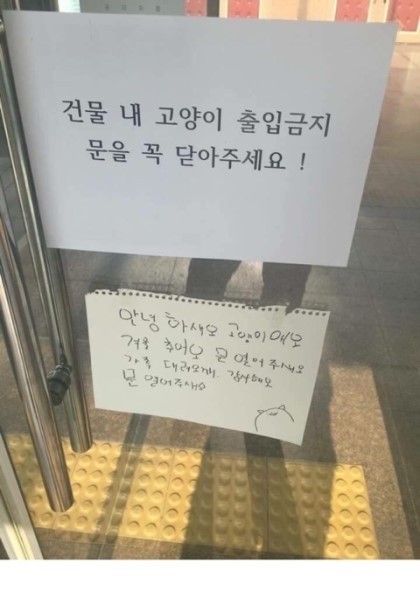 건물 내 고양이 출입금지
문을 꼭 닫아주세요 !
안녕 하새오 고영이애오
겨울 추어오 문 열어 주새오
가족 대려오개. 감사해오
문 열어주새ㅇ